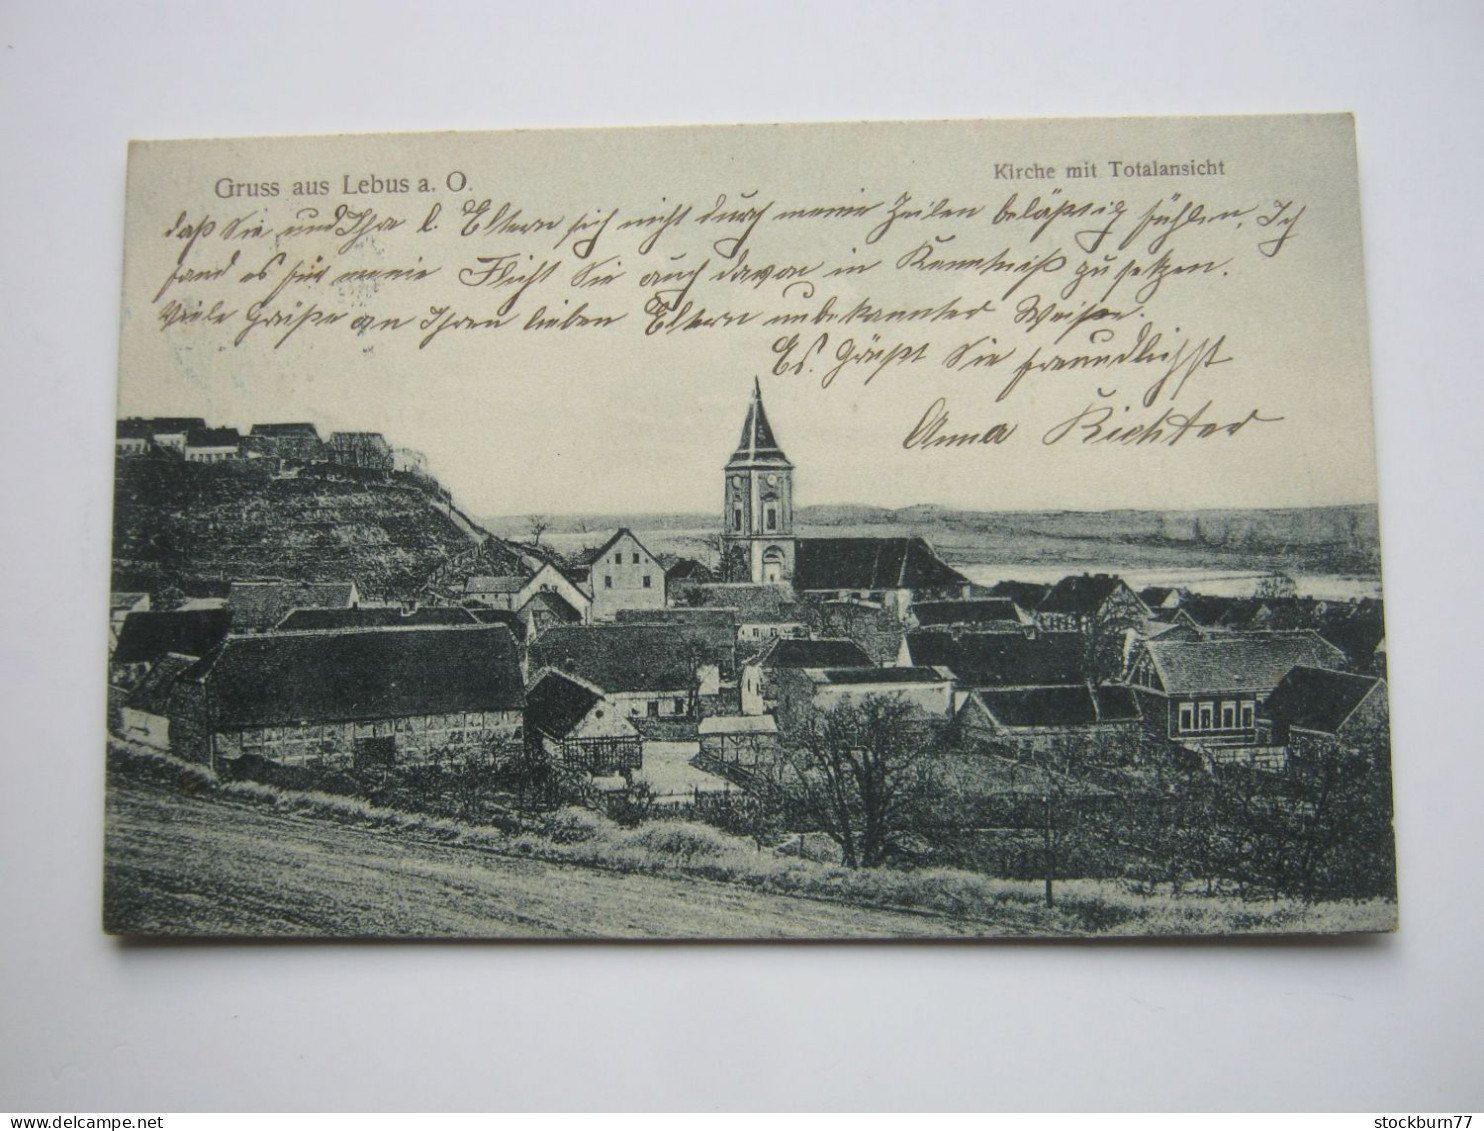 Gruss aus Lebus a. O.
Kirche mit Totalansicht
daß Sie und Ihre l. Eltern sich nicht durch meine Zeilen beläßtig fühlen, Ich
fand es für meine Flicht Sie auch davon in Kenntniß zu setzen.
Viele Grüße an Ihren lieben Eltern unbekannter Weise.
Es Grüßt Sie freundlichst
Anna Richter
stockburn77